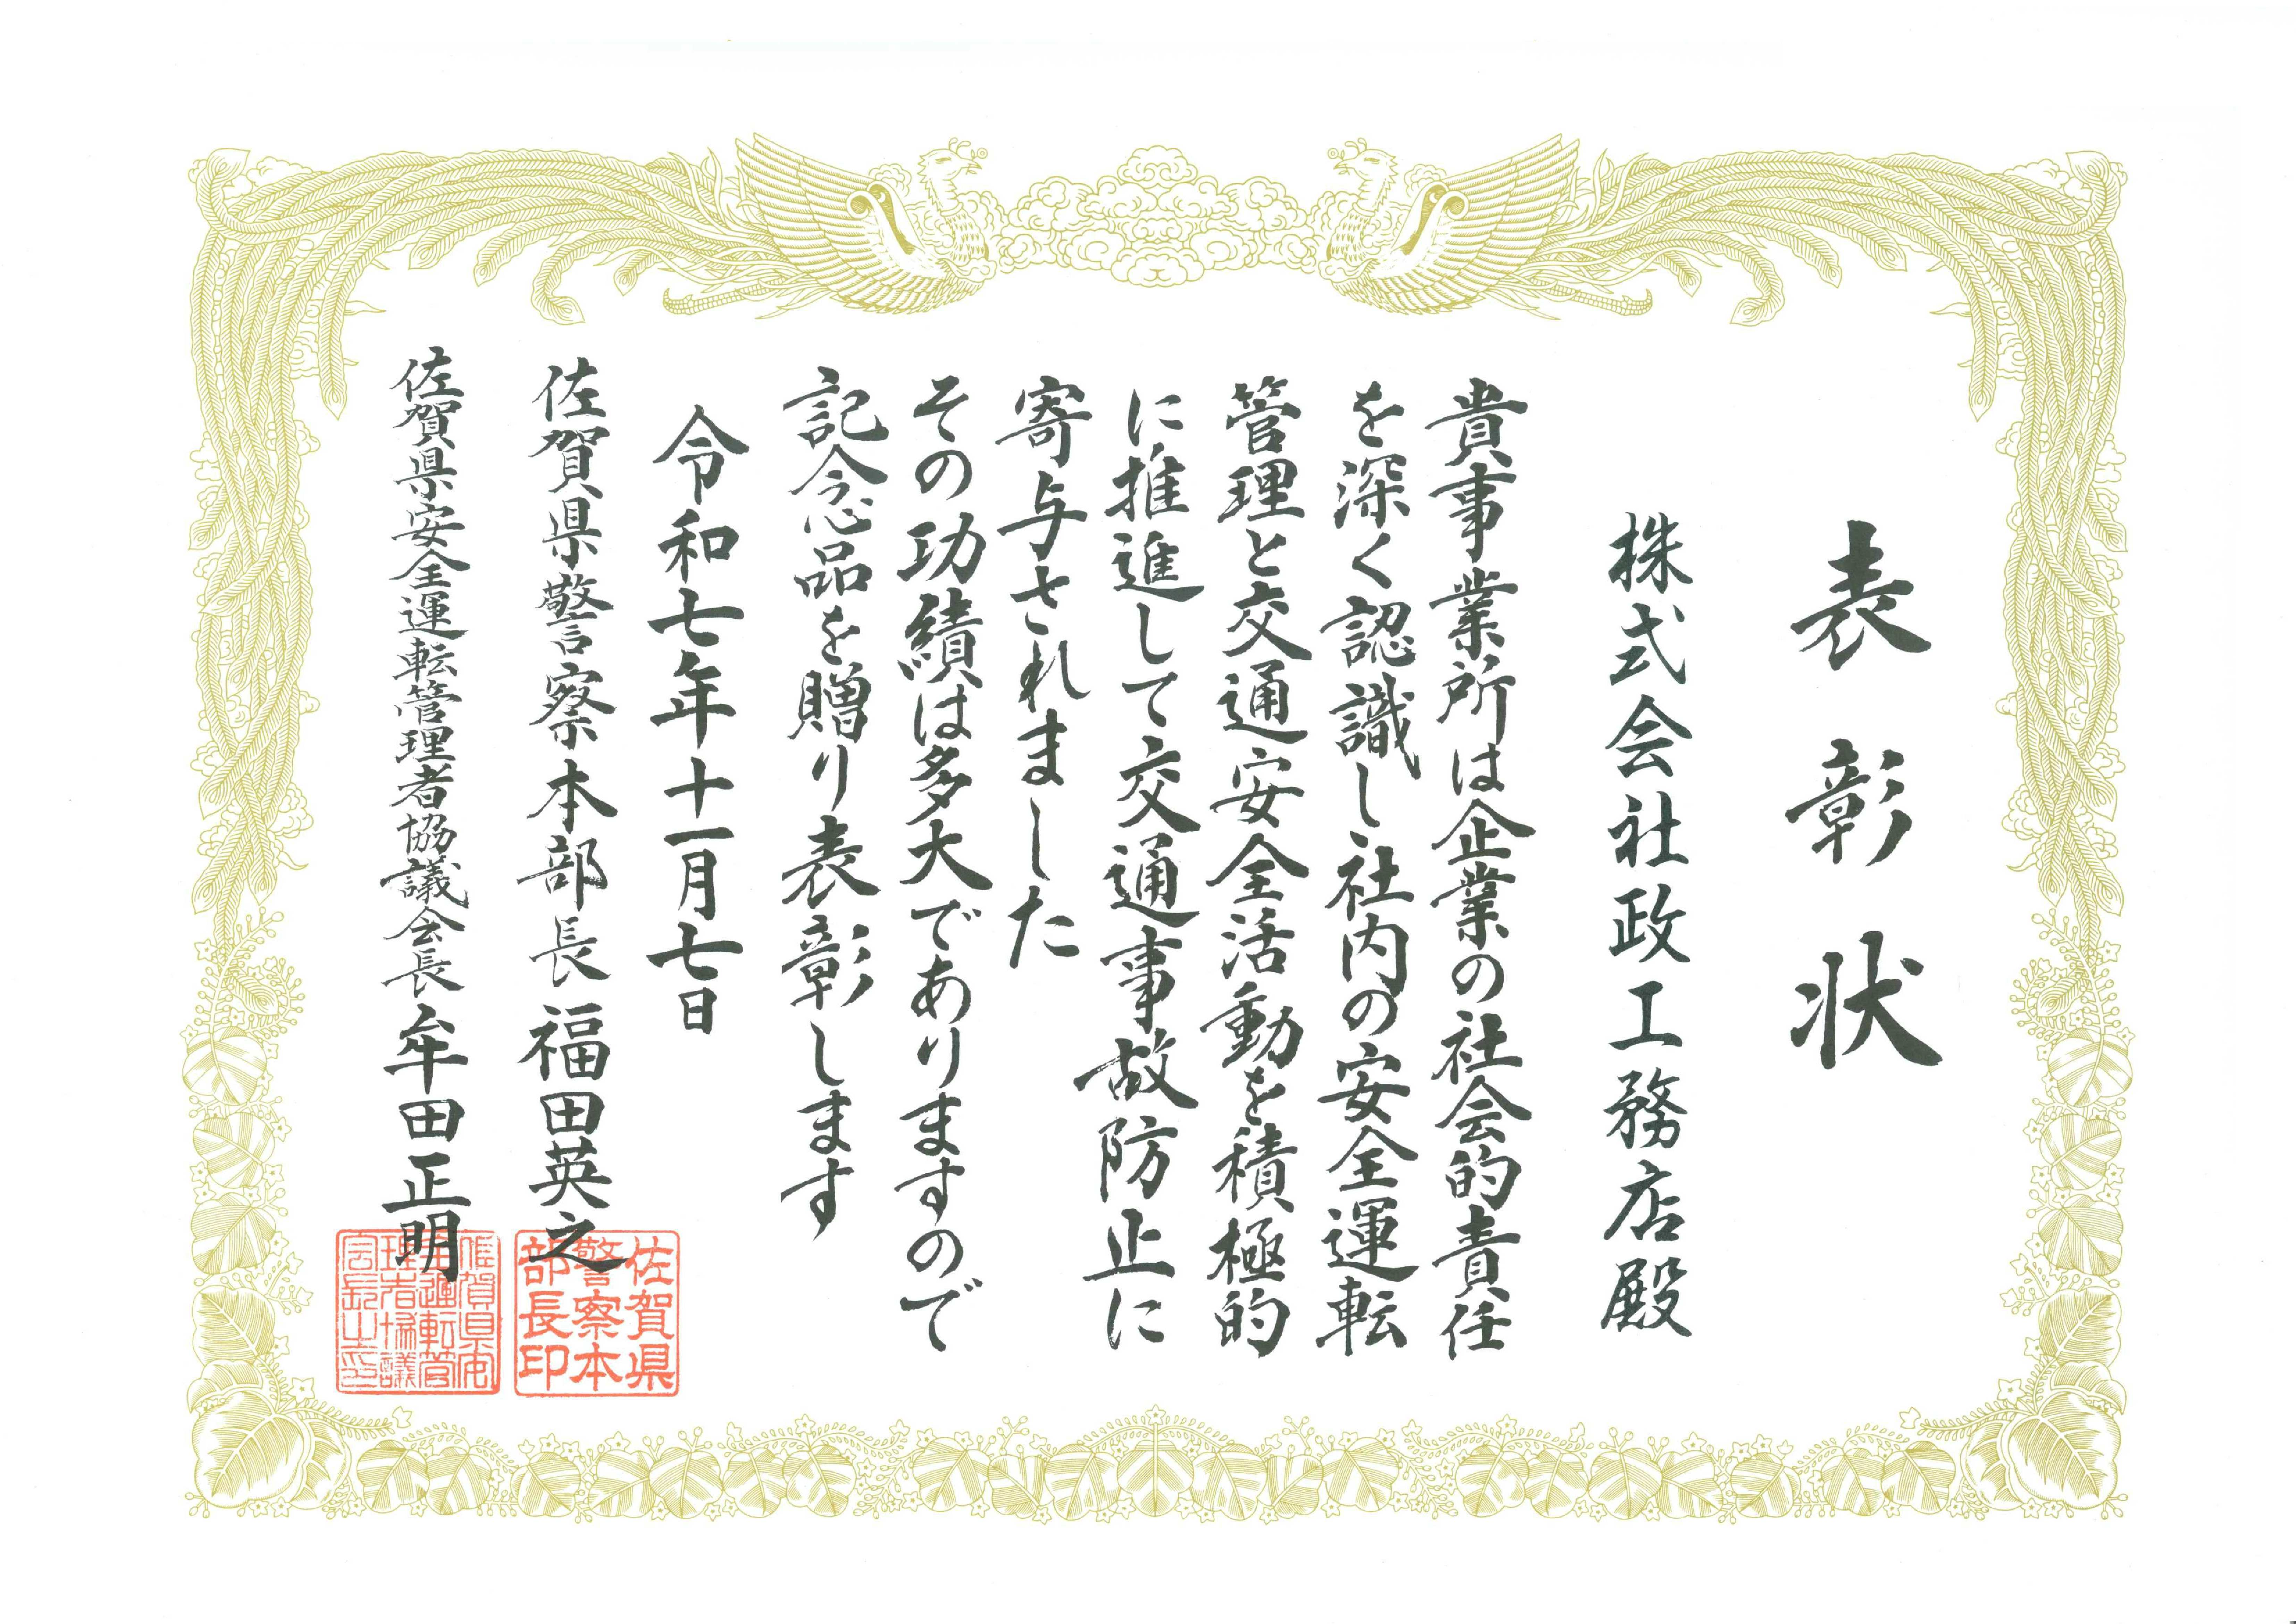 表彰状
株式会社政工務店殿
貴事業所は企業の社会的責任
を深く認識し社内の安全運転
管理と交通安全活動を積極的
に推進して交通事故防止に
寄与されました
その功績は多大でありますので
記念品を贈り表彰します
令和七年十一月七日
佐賀県警察本部長 福田英之
佐賀県警察本部長印
佐賀県安全運転管理者協議会長 牟田正明
佐賀県安全運転管理者協議会長之印